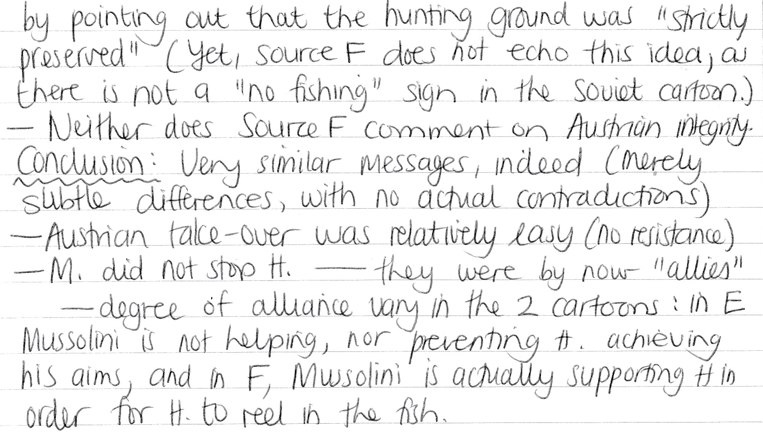 by pointing out that the hunting ground was "strictly
preserved" (Yet, Source F does not echo this idea, as
there is not a "no fishing" sign in the Soviet cartoon.)
— Neither does Source F comment on Austrian integrity.
Conclusion: Very similar messages, indeed (merely
subtle differences, with no actual contradictions)
— Austrian take-over was relatively easy (no resistance)
— M. did not stop H. — they were by now "allies"
— degree of alliance vary in the 2 cartoons: in E
Mussolini is not helping, nor preventing H. achieving
his aims, and in F, Mussolini is actually supporting H in
order for H. to reel in the fish.